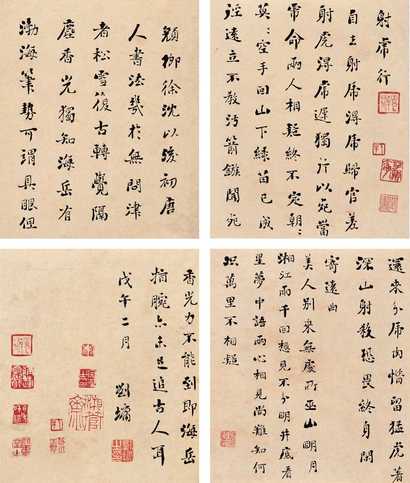 射虎行
自去射虎得虎歸官差
射虎得虎遲獨行以死當
虎命兩人相疑終不定朝〻
莫〻空手回山下緑苗已成
逕遠立不敢污箭鏃聞死
還來分虎肉惜留猛虎著
深山射殺恐畏終身閑
寄遠曲
美人別來無處所巫山明月
湘江雨千回想見不分明井底看
星夢中語兩心相見尚難知何
況萬里不相疑
顔柳徐沈以後初唐
人書法幾於無問津
者松雪復古轉覺隔
塵香光獨知海岳有
渤海筆勢可謂具眼但
香光力不能到即海岳
指腕亦未足追古人耳
戊午二月
劉墉